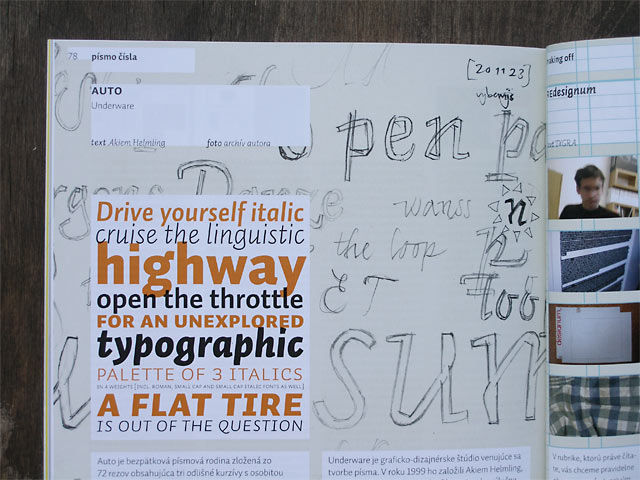 78 písmo čísla
AUTO
Underware
text Akiem Helmling foto archív autora
[20 11 23]
open
wanss
n
the loop
ET too
sun
Drive yourself italic
cruise the linguistic
highway
open the throttle
FOR AN UNEXPLORED
typographic
PALETTE OF 3 ITALICS
IN 4 WEIGHTS [INCL. ROMAN, SMALL CAP AND SMALL CAP ITALIC FONTS AS WELL]
A FLAT TIRE
IS OUT OF THE QUESTION
Auto je bezpätková písmová rodina zložená zo
72 rezov obsahujúca tri odlišné kurzívy s osobitou
Underware je graficko-dizajnérske štúdio venujúce sa
tvorbe písma. V roku 1999 ho založili Akiem Helmling,
aking off
REdesignum
designum
V rubrike, ktorú práve číta-
te, vás chceme pravidelne